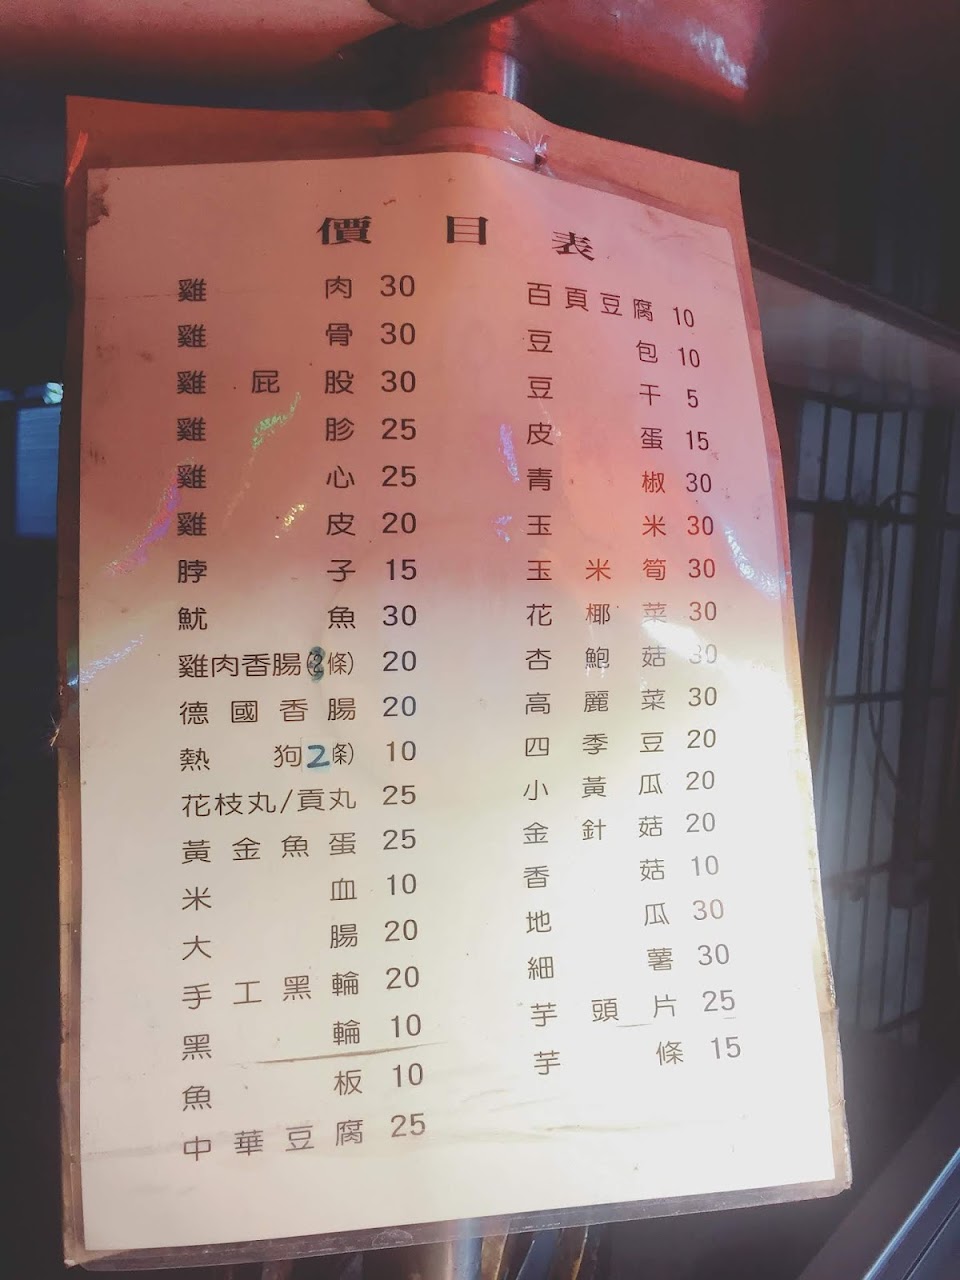 價目表
雞肉 30
雞骨 30
雞屁股 30
雞胗 25
雞心 25
雞皮 20
脖子 15
魷魚 30
雞肉香腸(2條) 20
德國香腸 20
熱狗(2條) 10
花枝丸/貢丸 25
黃金魚蛋 25
米血 10
大腸 20
手工黑輪 20
黑輪 10
魚板 10
中華豆腐 25
百頁豆腐 10
豆包 10
豆干 5
皮蛋 15
青椒 30
玉米 30
玉米筍 30
花椰菜 30
杏鮑菇 30
高麗菜 30
四季豆 20
小黃瓜 20
金針菇 20
香菇 10
地瓜 30
細薯 30
芋頭片 25
芋條 15